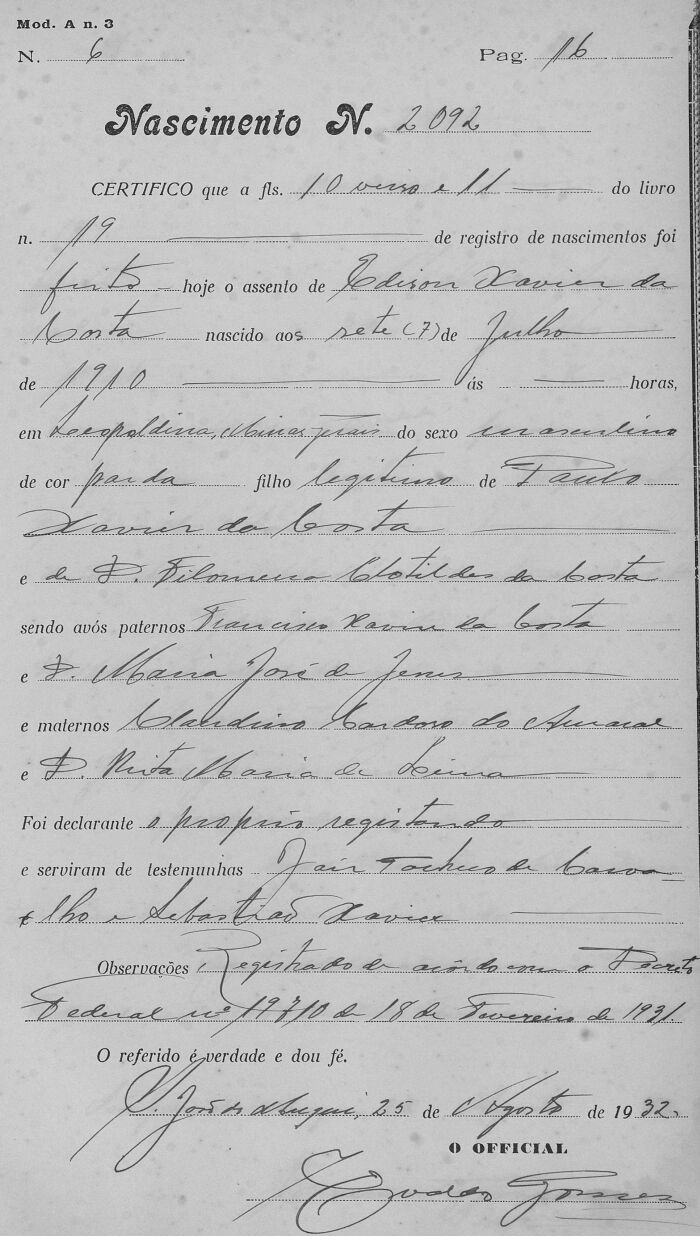 Mod. A n. 3
N. 6 Pag. 16
Nascimento N. 2092
CERTIFICO que a fls. 10 verso e 11 do livro
n. 19 de registro de nascimentos foi
feito hoje o assento de Edison Xavier da
Costa nascido aos sete (7) de Julho
de 1910 ás horas,
em Leopoldina, Minas Geraes do sexo masculino
de cor parda filho legitimo de Paulo
Xavier da Costa
e de D. Filomena Clotildes da Costa
sendo avós paternos Francisco Xavier da Costa
e D. Maria José de Jesus
e maternos Claudino Cardoso do Amaral
e D. Rita Maria de Lima
Foi declarante o proprio registando
e serviram de testemunhas Jair Pacheco de Carva-
lho e Sebastião Xavier
Observações Registrado de acôrdo com o Decreto
Federal nº 19710 de 18 de Fevereiro de 1931.
O referido é verdade e dou fé.
S. José de 25 de Agosto de 1932.
O OFFICIAL
Gomes